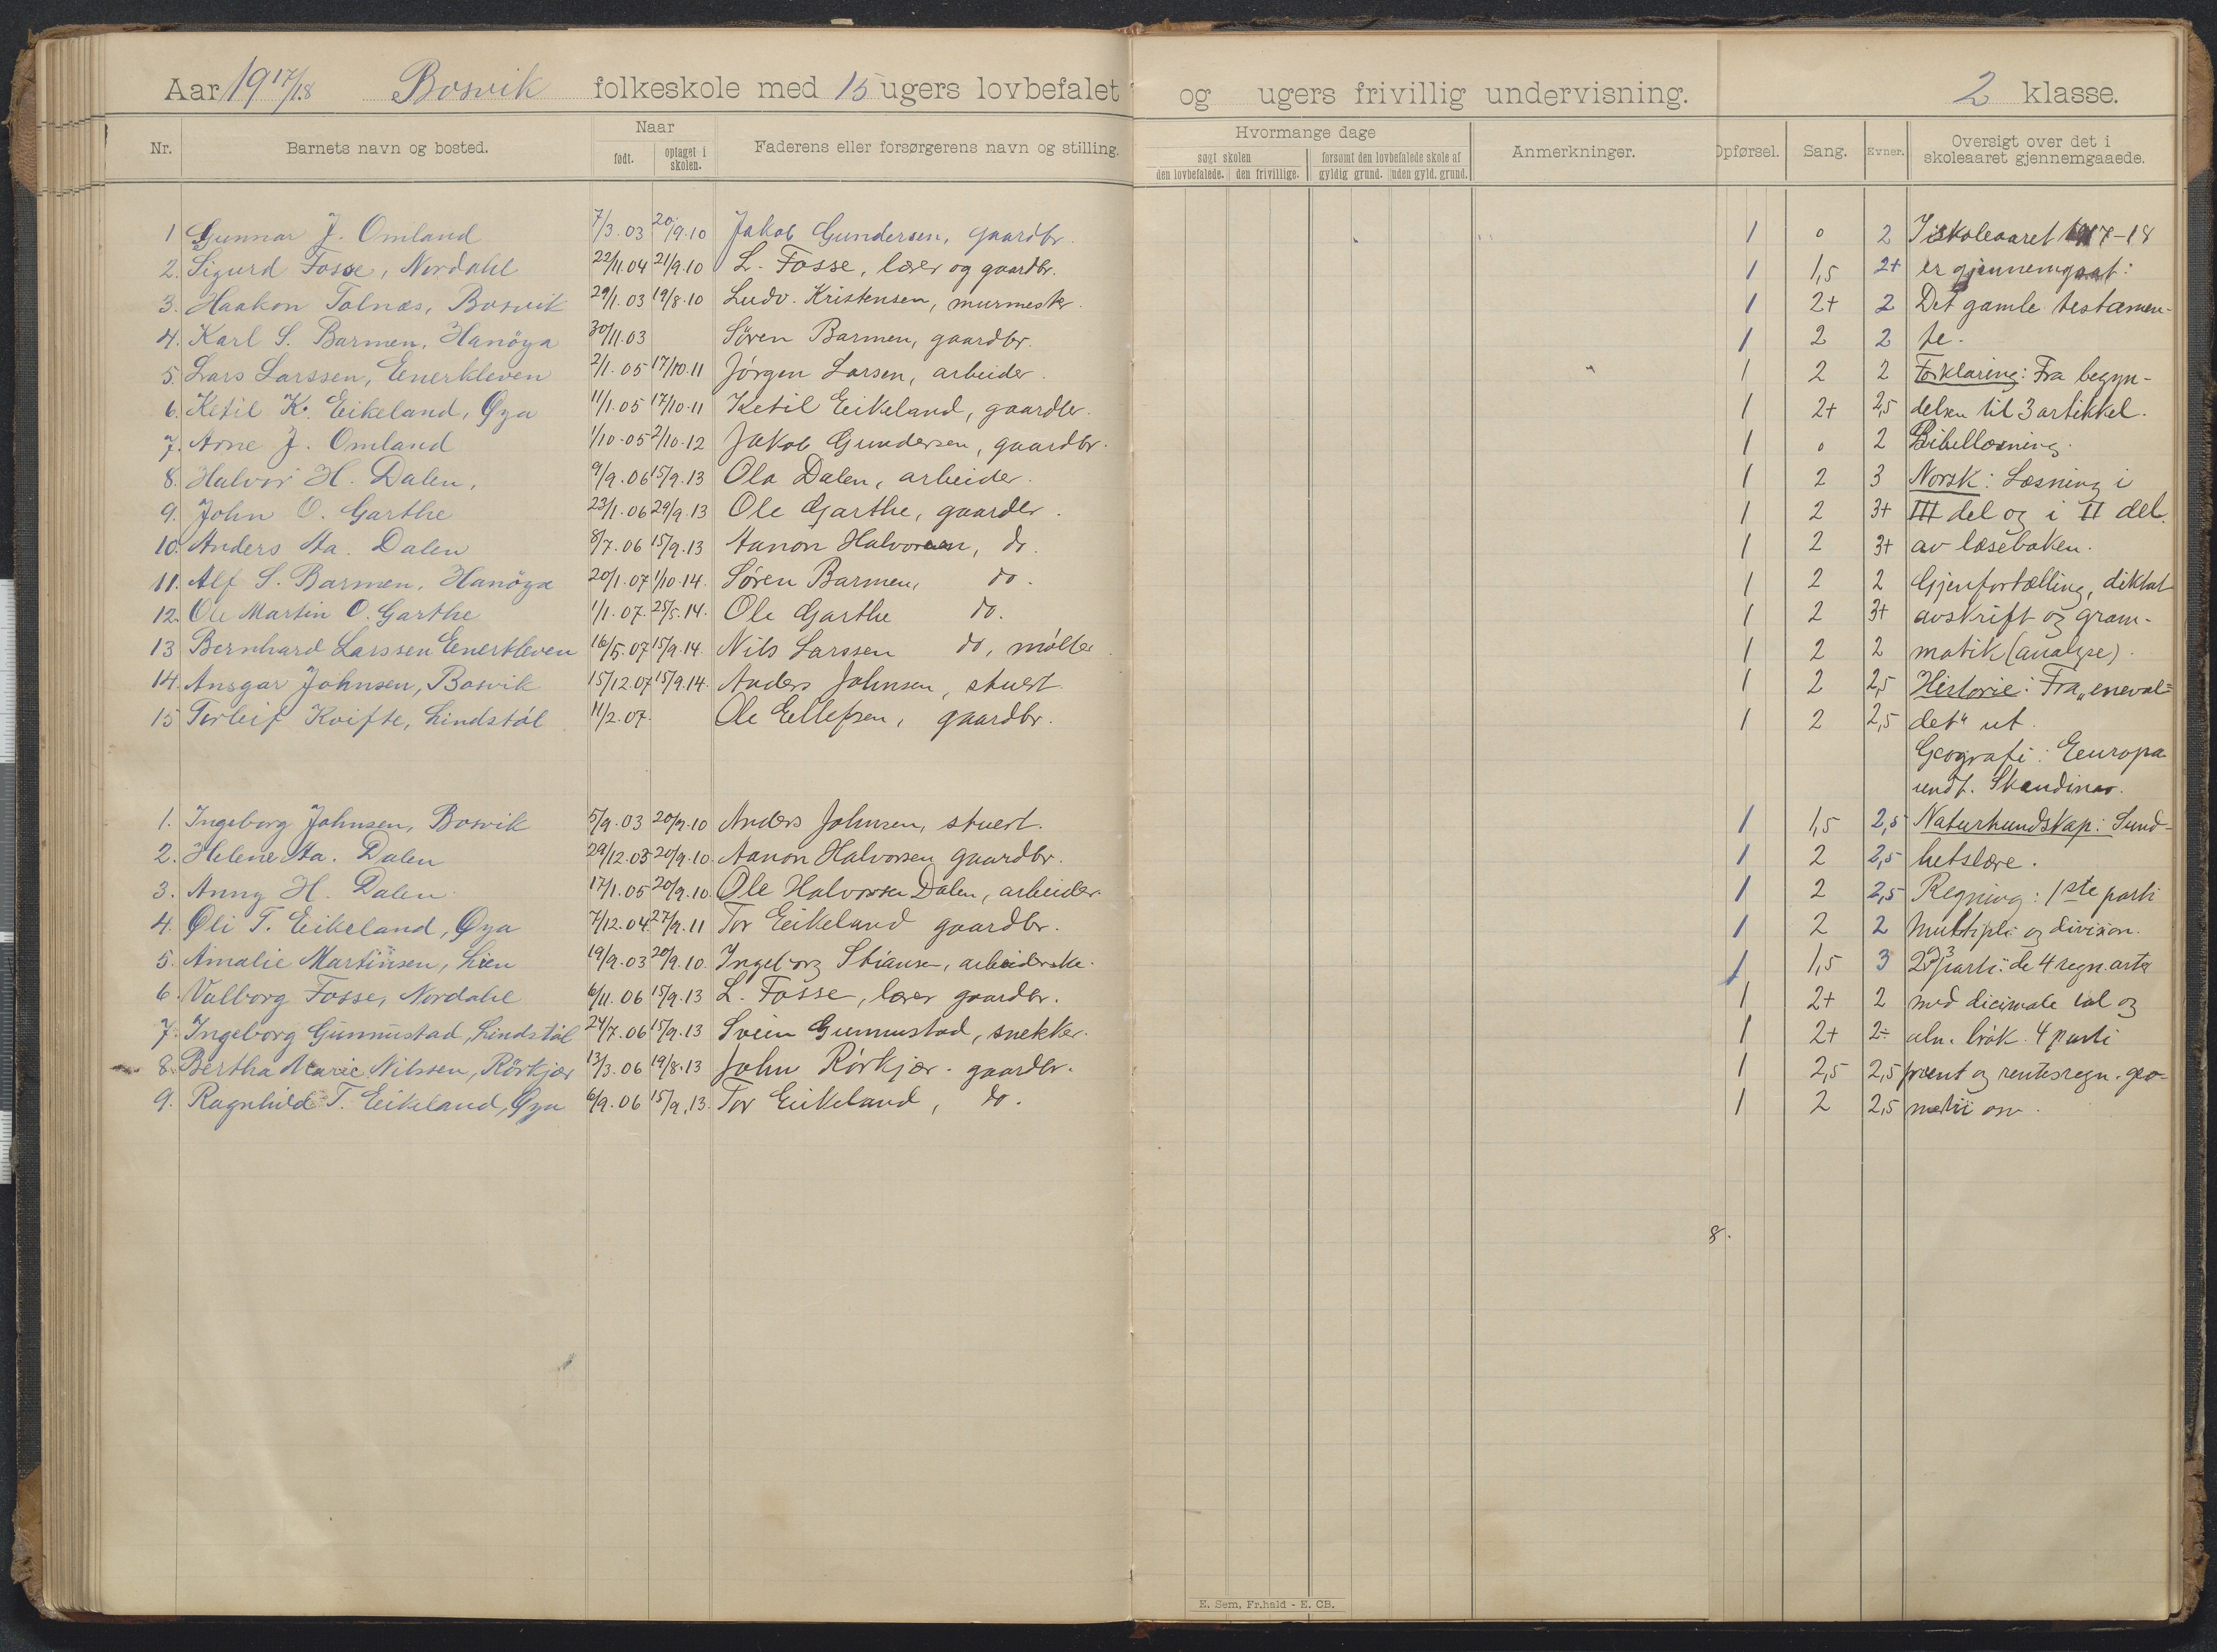 Aar 1917/18 Bosvik folkeskole med 15 ugers lovbefalet og ugers frivillig undervisning. 2 klasse.
Nr. Barnets navn og bosted. Naar født. optaget i skolen. Faderens eller forsørgerens navn og stilling. Hvormange dage søgt skolen den lovbefalede. den frivillige. forsømt den lovbefalede skole af gyldig grund. uden gyld. grund. Anmerkninger. Opførsel. Sang. Evner. Oversigt over det i skoleaaret gjennemgaaede.
1 Gunnar J. Omland 7/3.03 20/9.10 Jakob Gundersen, gaardbr. 1 0 2 I skoleaaret 1917-18
2. Sigurd Fosse, Nordahl 22/11.04 21/9.10 L. Fosse, lærer og gaardbr. 1 1,5 2+ er gjennemgaat:
3. Haakon Tolnæs, Bosvik 29/1.03 19/8.10 Ludv. Kristensen, murmester. 1 2+ 2 Det gamle testamen-
4. Karl S. Barmen, Hanöya 30/11.03 Søren Barmen, gaardbr. 1 2 2 te.
5. Lars Larssen, Enerkleven 2/1.05 17/10.11 Jørgen Larsen, arbeider. 1 2 2 Forklaring: Fra begyn-
6. Ketil K. Eikeland, Øya 11/1.05 17/10.11 Ketil Eikeland, gaardbr. 1 2+ 2,5 delsen til 3 artikkel.
7. Arne J. Omland 1/10.05 2/10.12 Jakob Gundersen, gaardbr. 1 0 2 Bibellæsning.
8. Halvor H. Dalen, 9/9.06 15/9.13 Ola Dalen, arbeider. 1 2 3 Norsk: Læsning i
9. John O. Garthe 23/1.06 29/9.13 Ole Garthe, gaardbr. 1 2 3+ III del og i II del.
10. Anders Aa. Dalen 8/7.06 15/9.13 Aanon Halvorsen, do. 1 2 3+ av læseboken.
11. Alf S. Barmen, Hanöya 20/1.07 1/10.14. Søren Barmen, do. 1 2 2 Gjenfortælling, diktat
12. Ole Martin O. Garthe 1/1.07. 25/5.14. Ole Garthe do. 1 2 3+ avskrift og gram-
13 Bernhard Larssen Enerkleven 16/5.07 15/9.14. Nils Larssen do, møller. 1 2 2 matik (analyse).
14. Ansgar Johnsen, Bosvik 15/12.07 15/9.14. Anders Johnsen, stuert 1 2 2,5 Historie: Fra „eneval=
15 Torleif Kvifte, Lindstøl 11/2.07. Ole Ellefsen, gaardbr. 1 2 2,5 det" ut.
Geografi: Europa
undt. Skandinav.
1. Ingeborg Johnsen, Bosvik 5/9.03 20/9.10 Anders Johnsen, stuert. 1 1,5 2,5 Naturkundskap: Sund-
2. Helene Aa. Dalen 29/12.03 20/9.10. Aanon Halvorsen gaardbr. 1 2 2,5 hetslære.
3. Anny H. Dalen. 17/1.05 20/9.10. Ole Halvorsen Dalen, arbeider. 1 2 2,5 Regning: 1ste parti
4. Oli T. Eikeland, Øya 7/12.04 27/9.11 Tor Eikeland gaardbr. 1 2 2 Multipli og division.
5. Amalie Martinsen, Lien 19/9.03 20/9.10. Ingeborg Stiansen, arbeiderske. 1 1,5 3 2 og 3 parti: de 4 regn. arter
6. Valborg Fosse, Nordahl 6/11.06 15/9.13 L. Fosse, lærer gaardbr. 1 2+ 2 med desimale tal og
7. Ingeborg Gunnustad, Lindstöl 24/7.06 15/9.13 Svein Gunnustad, snekker. 1 2+ 2÷ alm. brøk. 4 parti
8. Bertha Marie Nilssen, Rörkjær 13/3.06 19/8.13 John Rørkjær. gaardbr. 1 2,5 2,5 procent og rentesregn. geo-
9. Ragnhild T. Eikeland, Øya 6/9.06 15/9.13. Tor Eikeland, do. 1 2 2,5 metri osv.
8.
E. Sem, Fr.hald - E. CB.